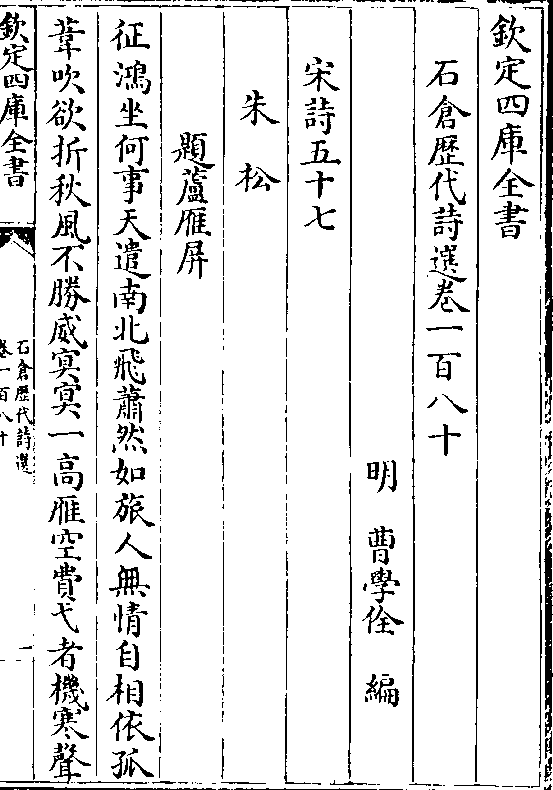 欽定四庫全書
石倉歴代詩選卷一百八十
明 曹學佺 編
宋詩五十七
朱松
題蘆雁屏
征鴻坐何事天遣南北飛蕭然如旅人無情自相依孤
葦吹欲折秋風不勝威冥冥一高雁空費弋者機寒聲
欽定四庫全書
石倉歴代詩選
卷一百八十
一